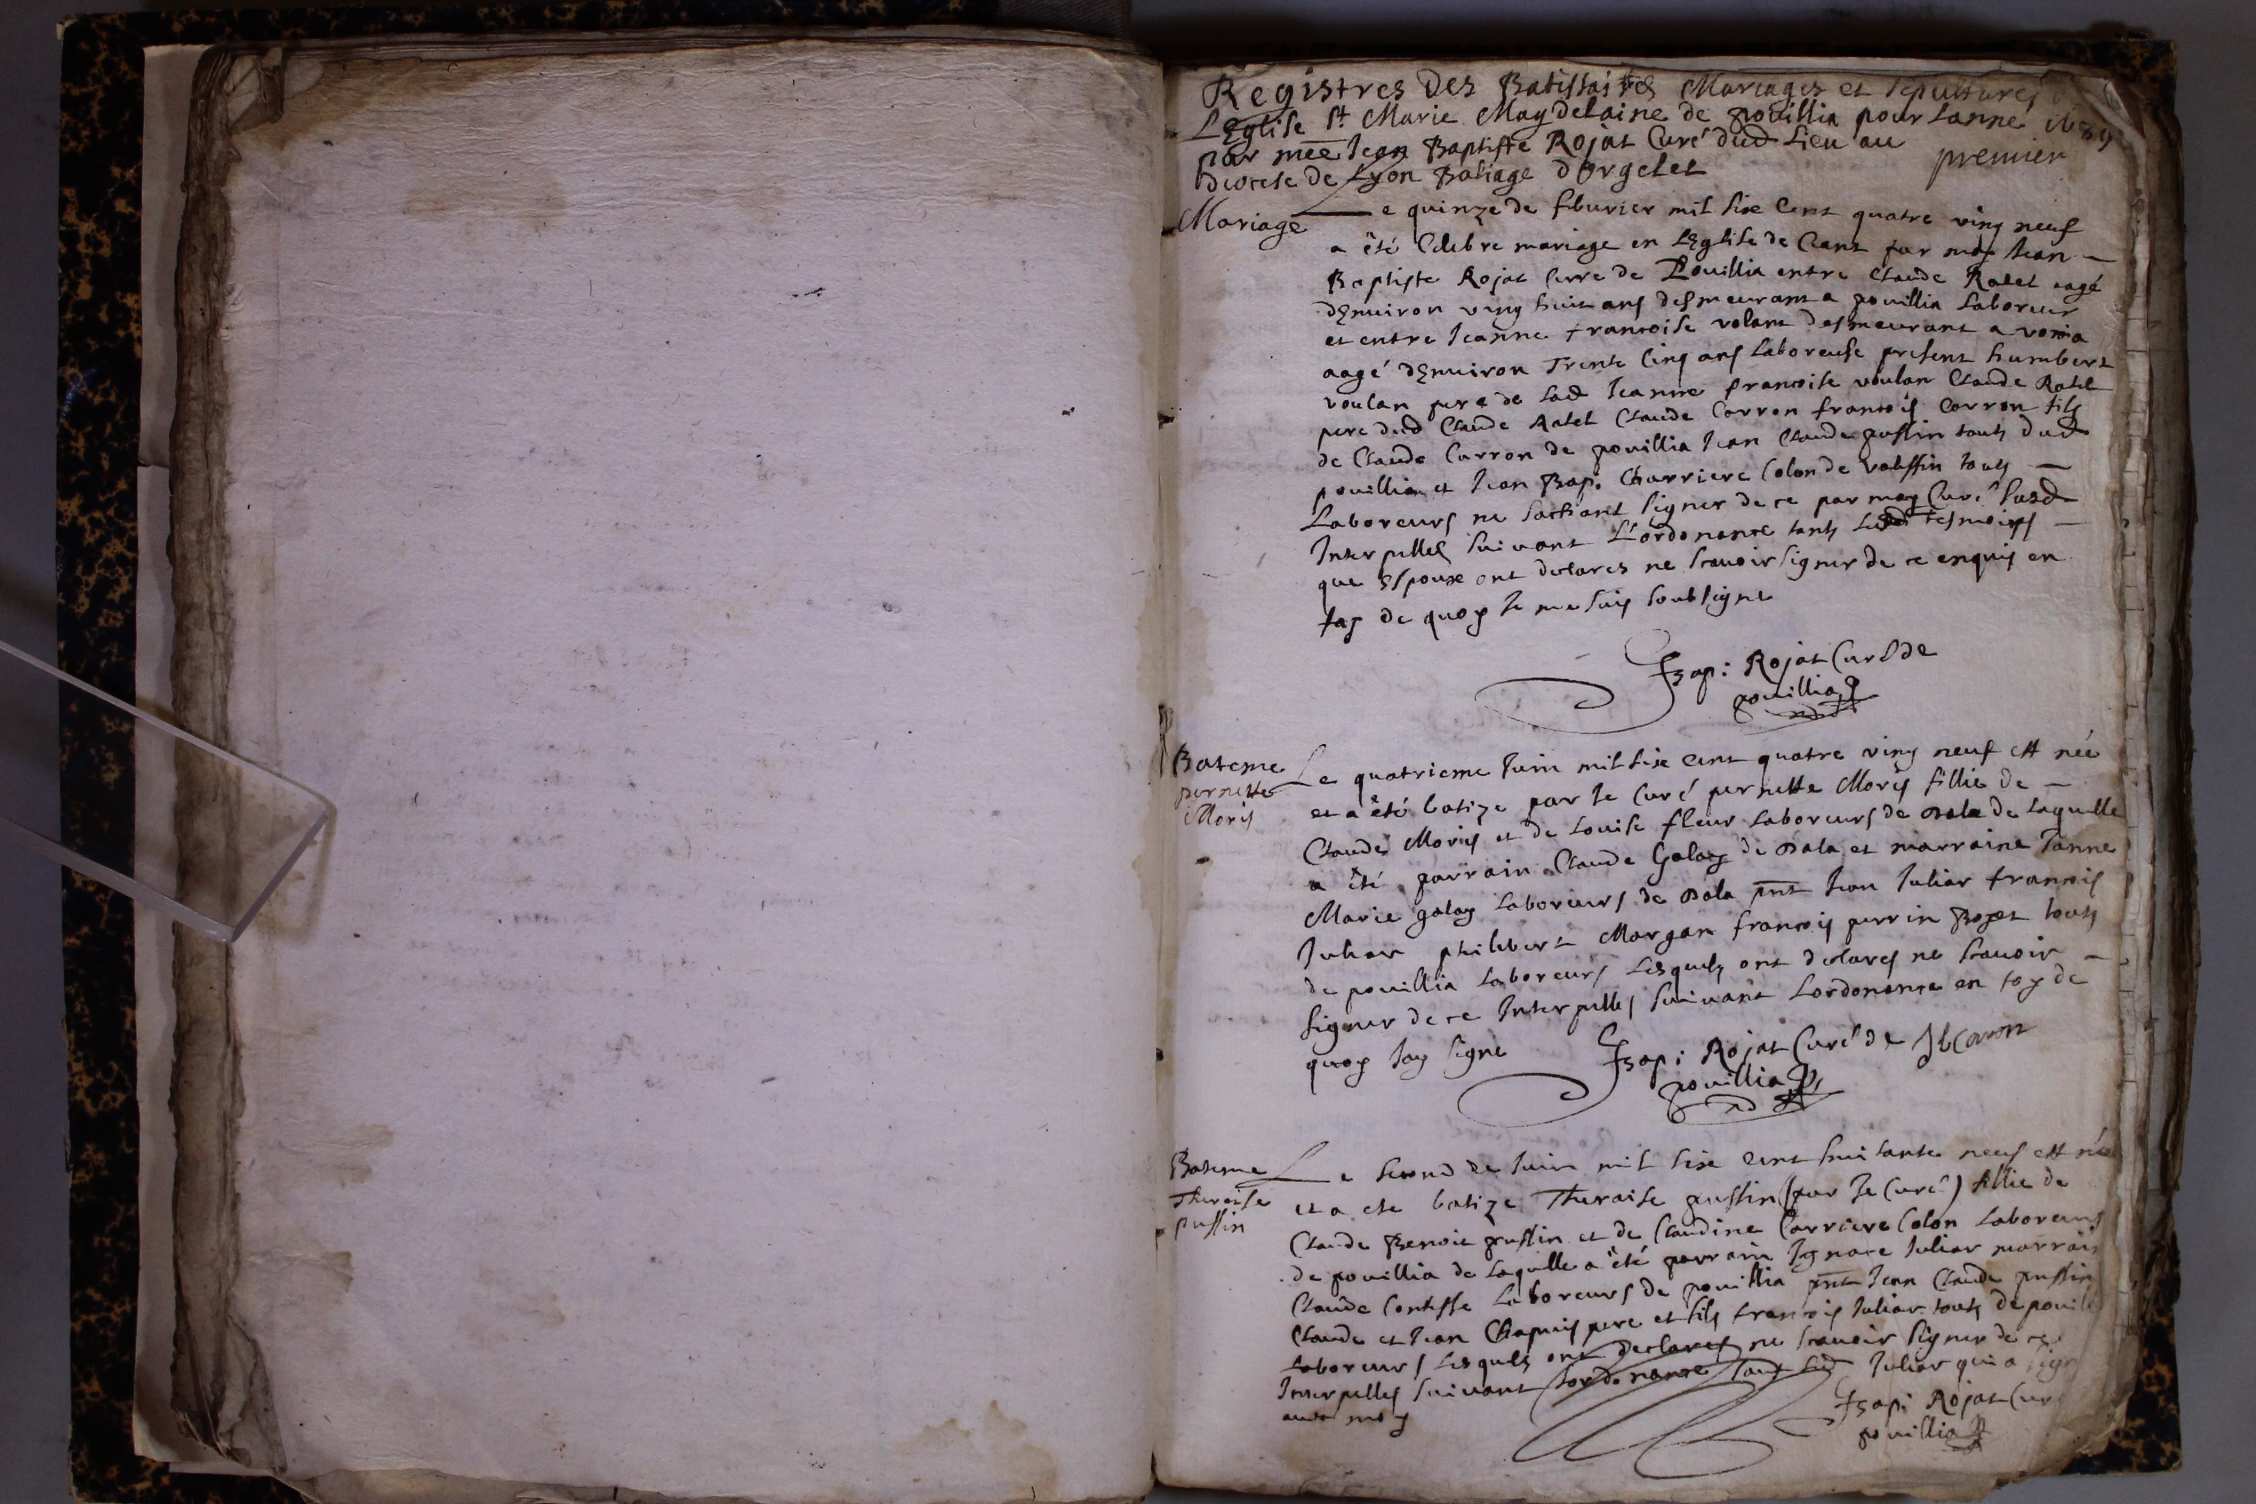 Registres Des Batissaires Mariages et sepultures
LEglise st Marie Magdelaine de poüillia pour Lanne 1689
par mee Jean Baptiste Rojat Curé dud Lieu au
premier
diocese de Lyon Baliage dOrgelet
Mariage
Le quinze de feburier mil sixe Cent quatre ving neuf
a êté Celebre mariage en LEglise de par moy Jean
Baptiste Rojat Curre de Poüillia entre Claude Ratel aagé
dEnuiron ving huit ans desmeurant a poüillia Laboreur
et entre Jeanne francoise volant desmeurant a
aagé dEnuiron Trente Cinq ans Laboreuse present humbert
voulan pere de lad Jeanne francoise voulan Claude Ratel
pere dud Claude Ratel Claude Carron francois Carron fils
de Claude Carron de poüillia Jean Claude pussin touts dud
poüillia et Jean Bap. Charriere Colon de touts
Laboreurs ne sachant signer de ce par moy Curé susd
Interpelles suivant L'ordonance tants tesmoins
que Espoux ont declares ne scauoir signer de ce enquis en
foy de quoy Je me suis soubsigne
JBap: Rojat Curé de
poüillia
Bateme
pernette
Moris
Le quatrieme Juin mil sixe cent quatre ving neuf est née
et a êté batize par Je Curé pernette Moris fillie de
Claude Moris et de Louise fleur Laboreurs de Dala de laquelle
a êté parrain Claude Galay de Dala et marraine Janne
Marie galay Laboreurs de Dala pnt Jean Juliar francois
Juliar philibert Morgan francois perrin touts
de poüillia Laboreurs Lesquels ont declares ne scauoir
signer de ce Interpelles suivant Lordonance en foy de
quoy Jay signe
JBap: Rojat Curé de
poüillia
Bateme
Theraise
pussin
Le second de Juin mil sixe cent huitante neuf est née
et a ete batize Theraise pussin (par Je Curé) fillie de
Claude Benoit pussin et de Claudine Carriere Colon Laboreurs
de poüillia de laquelle a êté parrain Ignace Juliar marraine
Claude Contesse Laboreurs de poüillia pnt Jean Claude pussin
Claude et Jean Chapuis pere et fils francois Juliar touts de
Laboreurs Lesquels ont declares ne scauoir signer de ce
Interpelles suivant Lordonance sauf led Juliar qui a
auec moy
JBap: Rojat Curé
poüillia